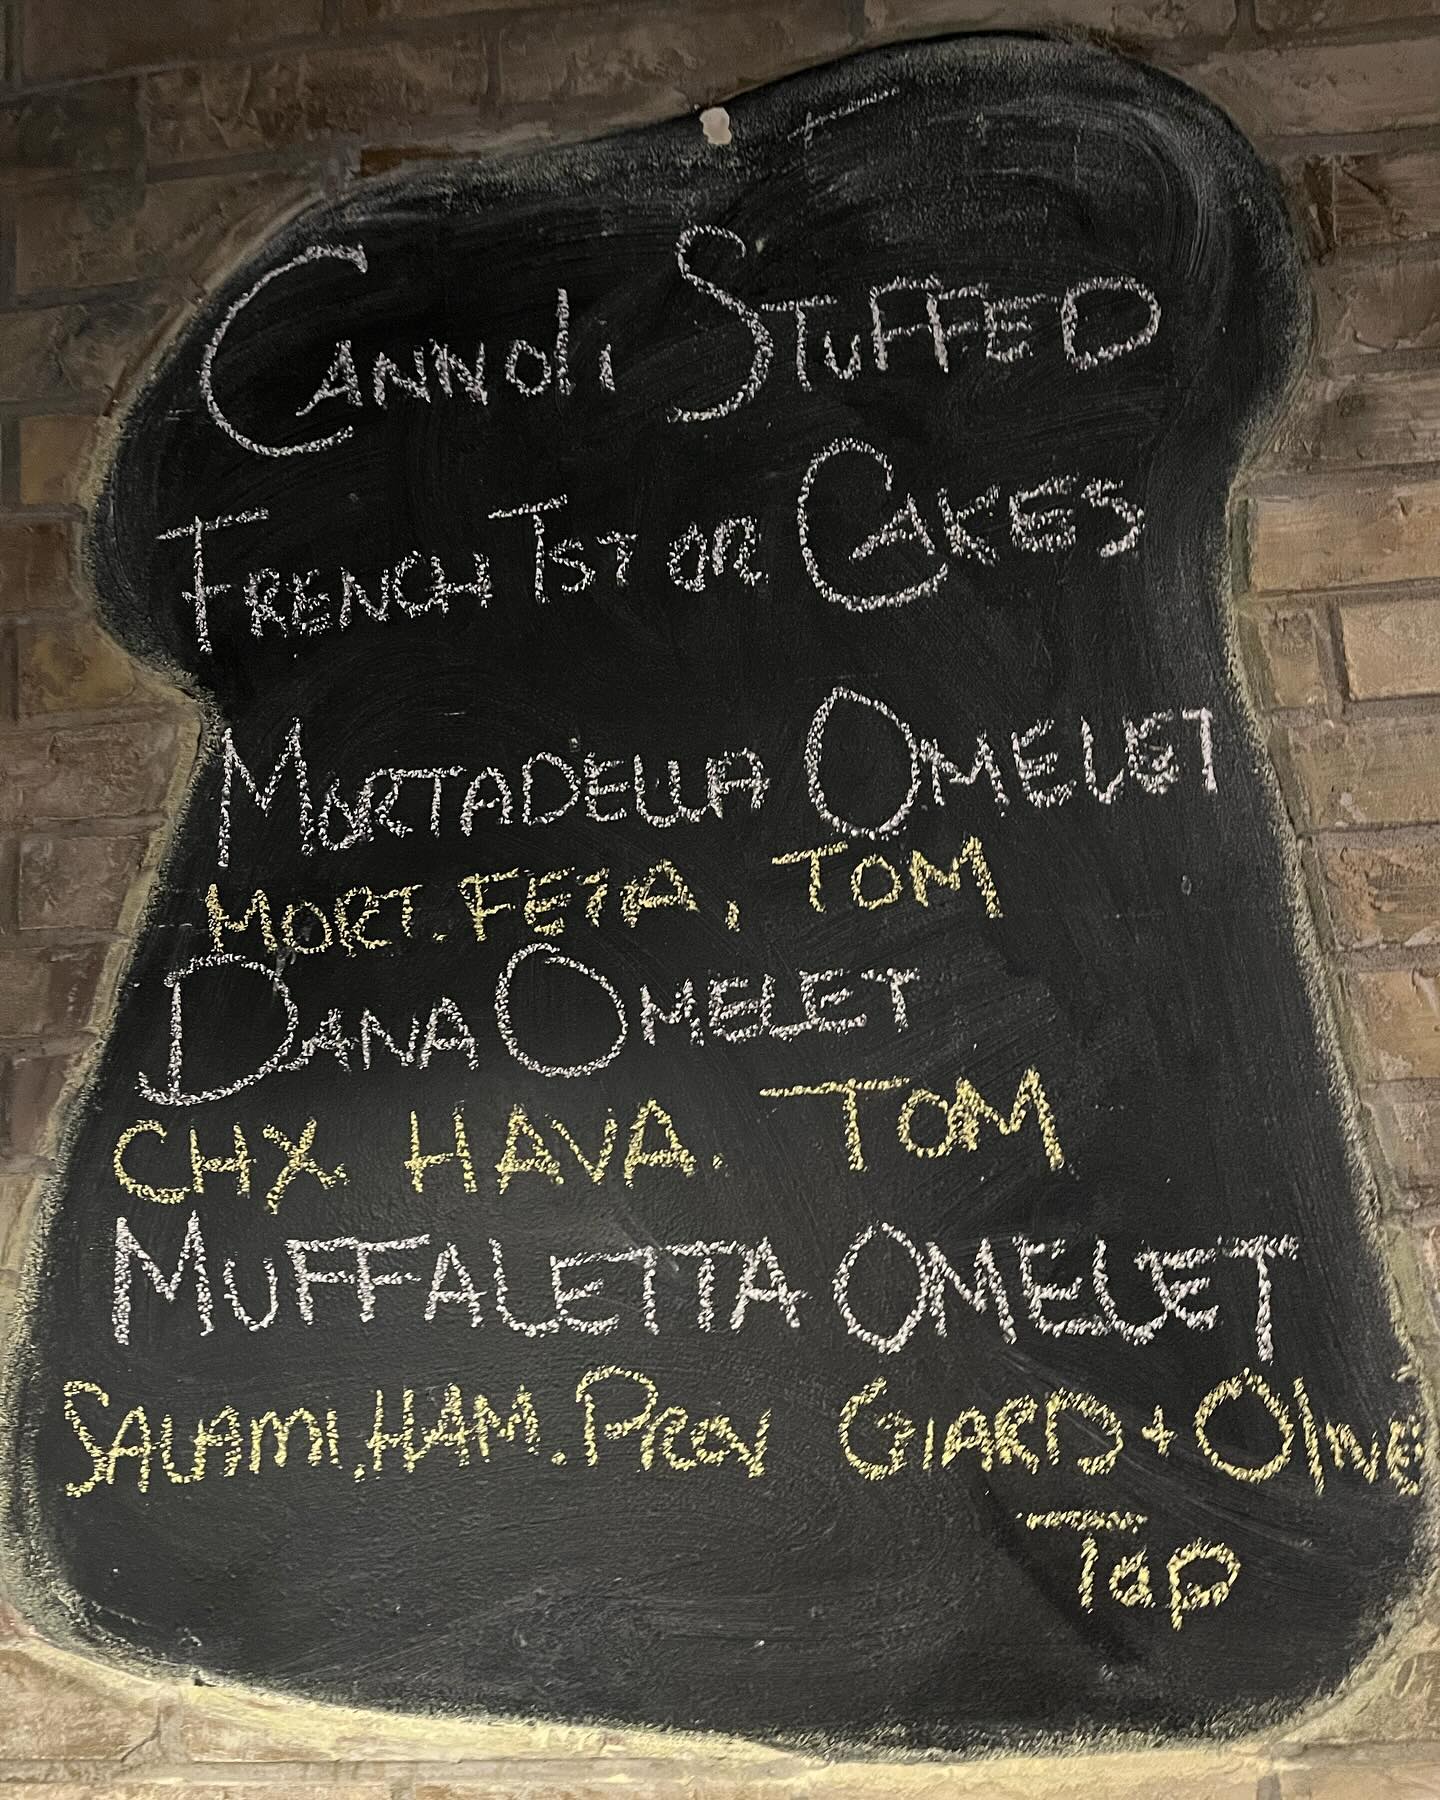 CANNOli STUFFED
FRENCH TST OR CAKES
MORTADELLA OMELET
MORT. FETA, TOM
DANA OMELET
CHX HAVA. TOM
MUFFALETTA OMELET
SALAMI. HAM. PROV GIARD + OlIVE
Tap